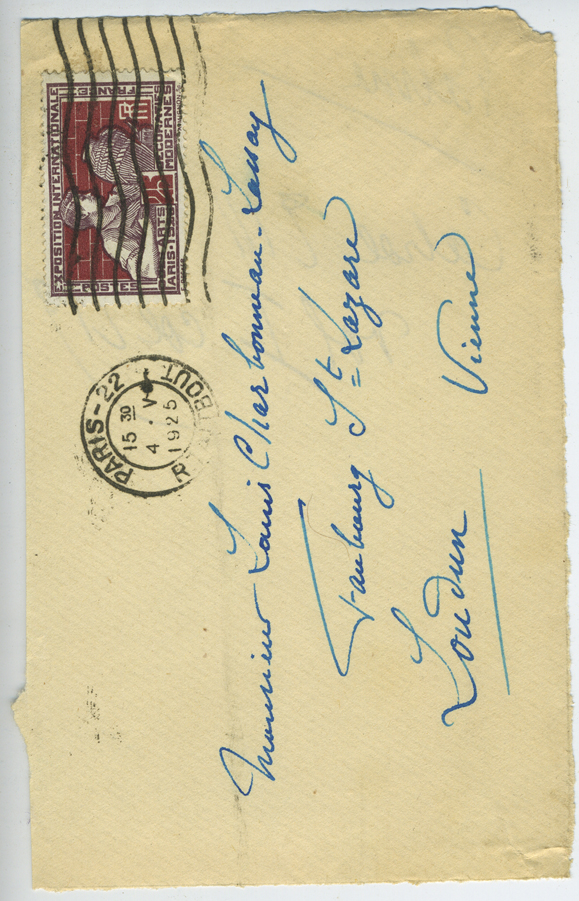 EXPOSITION INTERNATIONALE
FRANCE
RF
ARTS DÉCORATIFS
MODERNES
PARIS·1925
25
POSTES
PARIS-22
15 30
4 · V
1925
Monsieur Louis Charbonneau-Lassay
Faubourg St Lazare
Loudun
Vienne